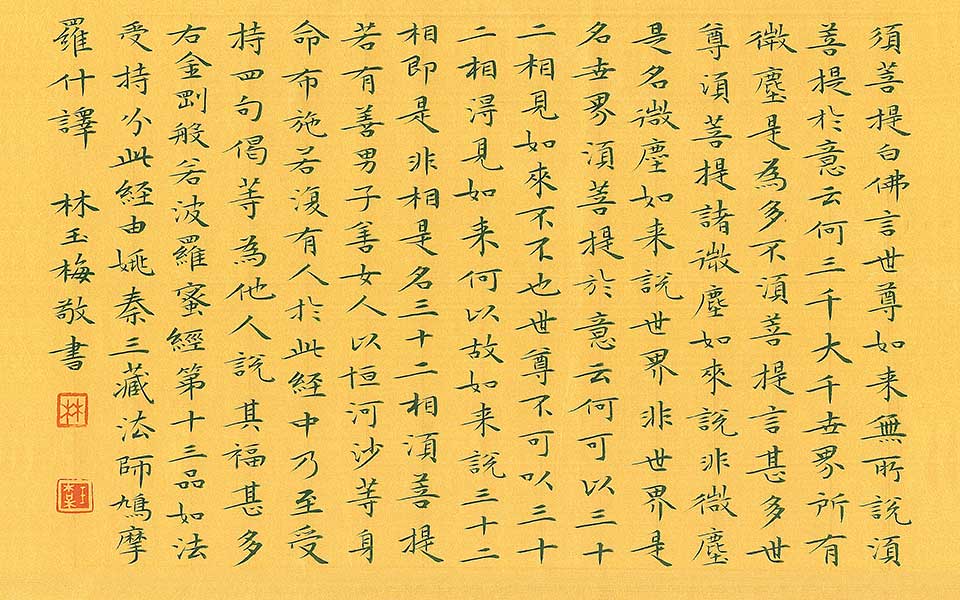 須菩提白佛言世尊如来無所說須
菩提於意云何三千大千世界所有
微塵是為多不須菩提言甚多世
尊須菩提諸微塵如來說非微塵
是名微塵如来說世界非世界是
名世界須菩提於意云何可以三十
二相見如來不不也世尊不可以三十
二相得見如来何以故如来說三十二
相即是非相是名三十二相須菩提
若有善男子善女人以恒河沙等身
命布施若復有人於此經中乃至受
持四句偈等為他人說其福甚多
右金剛般若波羅蜜經第十三品如法
受持分此經由姚秦三藏法師鳩摩
羅什譯 林玉梅敬書
林